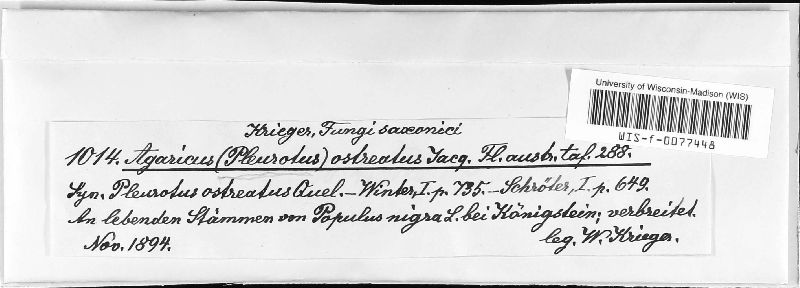 University of Wisconsin-Madison (WIS)
WIS-f-0077448
Krieger, Fungi saxonici
1014. Agaricus (Pleurotus) ostreatus Jacq. Fl. austr. taf. 288.
Syn. Pleurotus ostreatus Quel. – Winter, I. p. 735. – Schröter, I. p. 649.
An lebenden Stämmen von Populus nigra L. bei Königstein; verbreitet.
Nov. 1894. leg. W. Krieger.